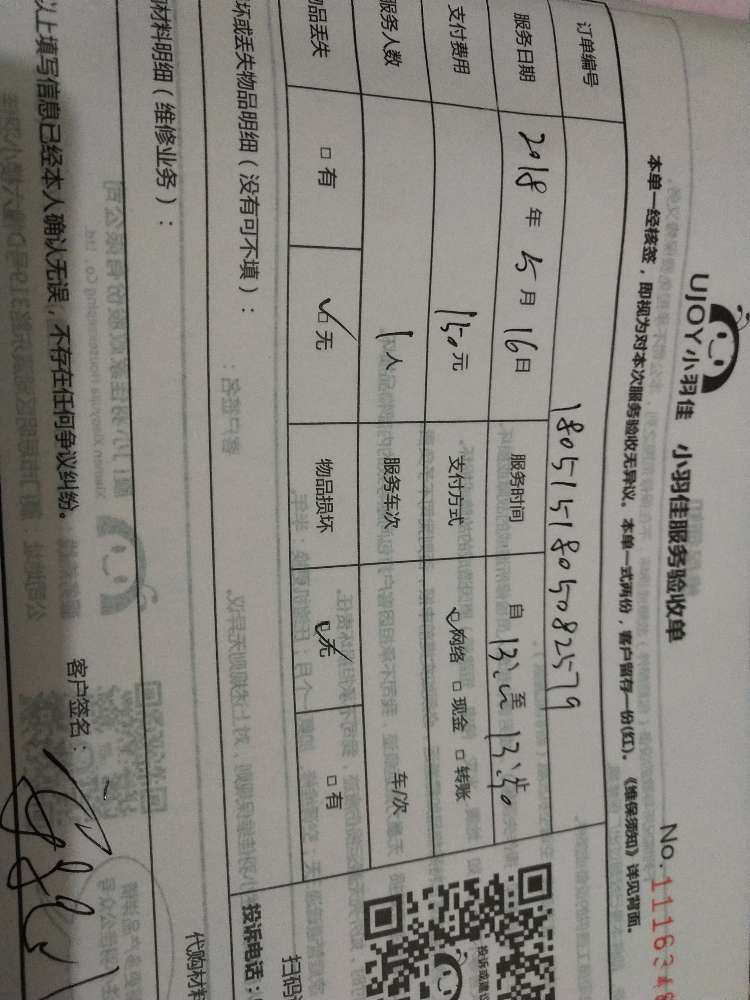 UJOY小羽佳 小羽佳服务验收单
No. 11163
本单一经核签，即视为对本次服务验收无异议。本单一式两份，客户留存一份(红)。《维保须知》详见背面。
订单编号 1805151805082579
服务日期 2018年5月16日 服务时间 自 至 止
支付费用 150元 支付方式 网络 □现金 □转账
服务人数 1人 服务车次 车/次
品丢失 □有 □无 物品损坏 □无 □有
坏或丢失物品明细（没有可不填）：
材料明细（维修业务）：
代购材料
以上填写信息已经本人确认无误，不存在任何争议纠纷。
客户签名：
投诉或建议
扫码
投诉电话：